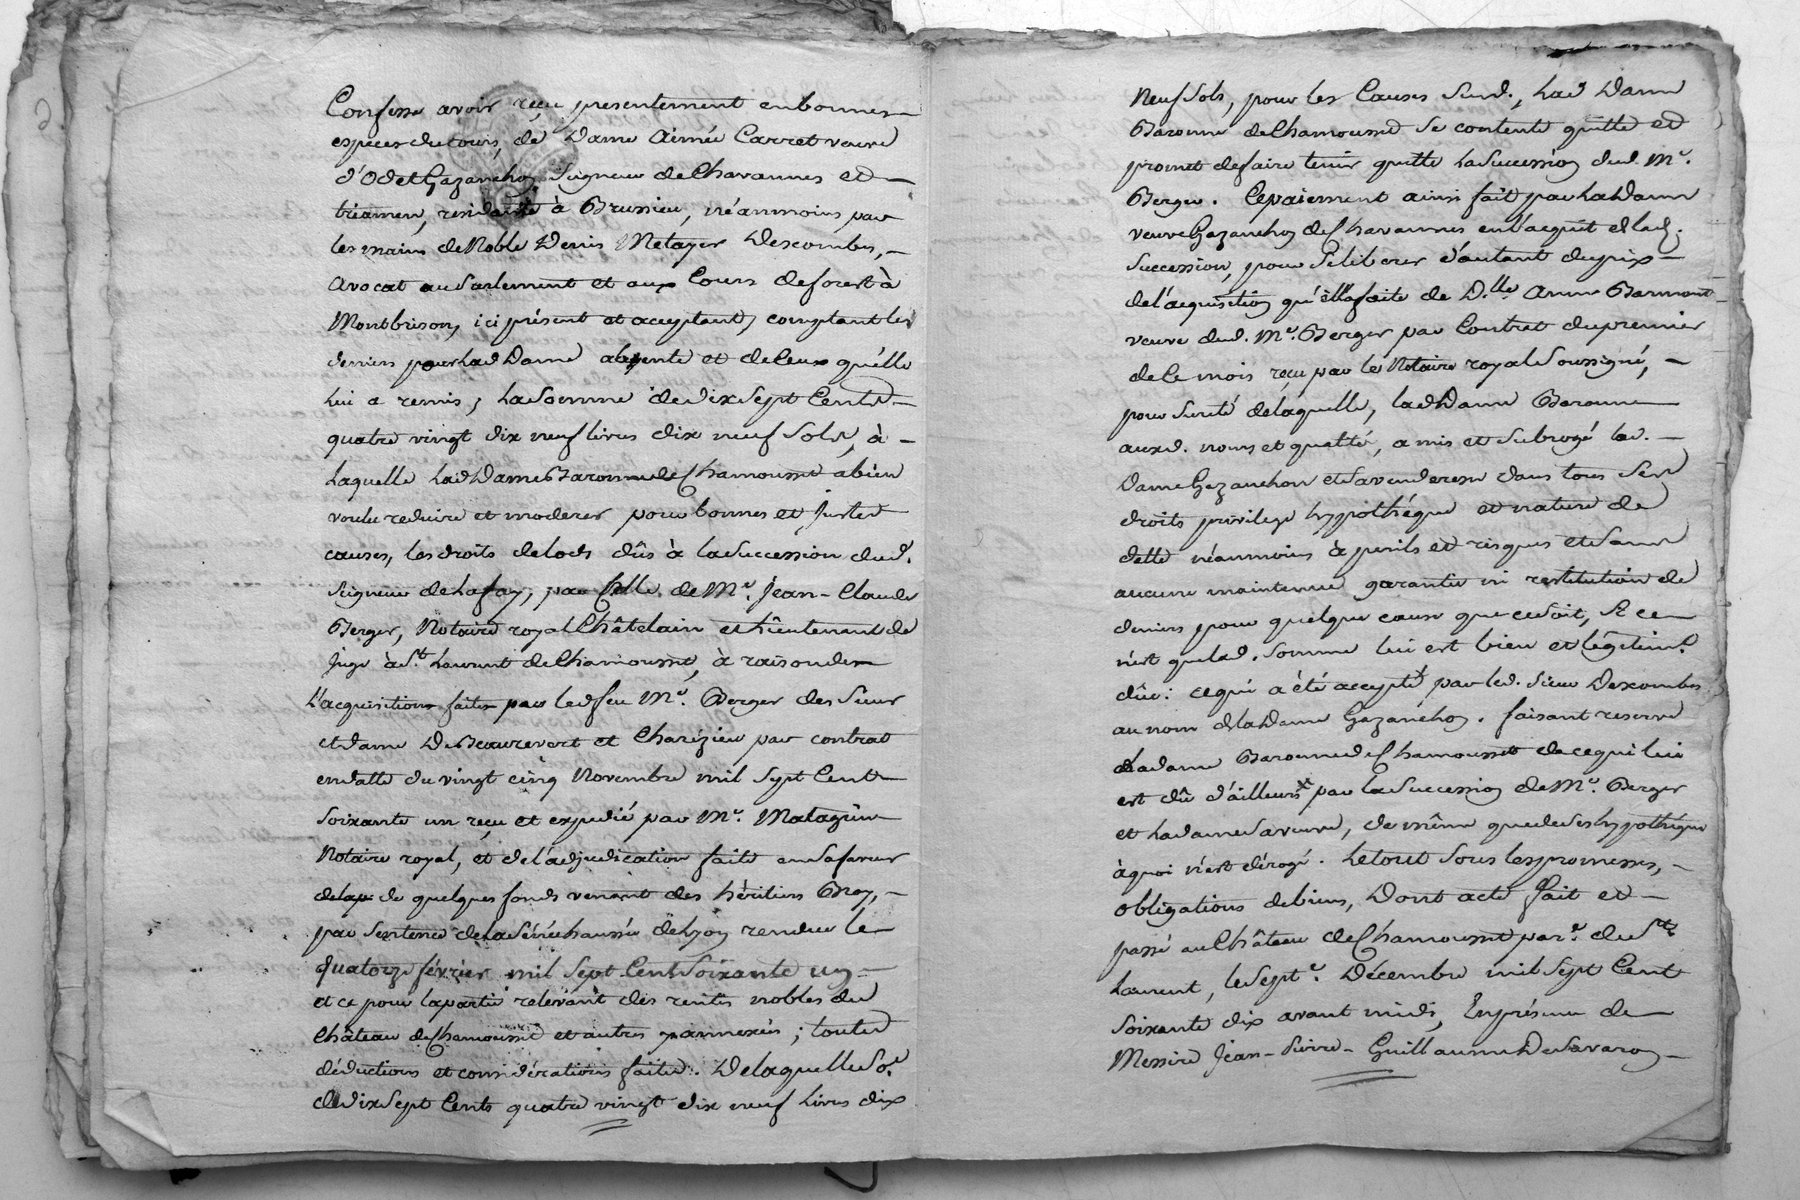 Confesse avoir reçu presentement en bonnes
especes du cours, de Dame Aimée Carret veuve
d'Odet Gazanchon Seigneur de Chavannes et
residante à Brussieu, néanmoins par
les mains de Noble Denis Metayer Descombes,
avocat au Parlement et aux Cours de forest à
Montbrison, ici présent et acceptant, comptant les
deniers pour lad Dame absente et de Ceux qu'elle
lui a remis, la Somme de dix Sept Cents
quatre vingt dix neuf livres dix neuf Sols, à
laquelle lad Dame Baronne de Chamousset a bien
voulu reduire et moderer pour bonnes et Justes
causes, les droits de lods dûs à la Succession dud.
Seigneur de Lafay, par Celle de Me. Jean-Claude
Berger, Notaire royal Châtelain et Lieutenant de
Juge à St. Laurent de Chamousset, à raison des
L'acquisitions faites par led feu Me. Berger des Sieur
et dame De Beaurevert et Charézieu par contrat
en datte du vingt cinq Novembre mil Sept Cent
Soixante un reçu et expedié par Me. Matagrin
Notaire royal, et de l'adjudication faite en Sa faveur
de quelques fonds venant des héritiers Broy,
par Sentence de la Sénéchaussée de Lyon rendue le
quatorze février mil Sept Cent Soixante un
et ce pour la partie relevant des rentes nobles du
Château de Chamousset et autres y annexées; toutes
déductions et considérations faites. De laquelle So.e
de dix Sept Cents quatre vingt dix neuf Livres dix
Neuf Sols, pour les Causes Susd., lad Dame
Baronne de Chamousset Se contente quitte et
promet de faire tenir quitte la Succession dud. Me.
Berger. Ce paiement ainsi fait par lad Dame
veuve Gazanchon de Chavannes en l'acquit de lad.
Succession, pour Se liberer d'autant du prix
de l'acquisition qu'elle a faite de D.lle Anne Barmont
veuve dud. Me. Berger par Contrat du premier
de Ce mois reçu par le Notaire royal Soussigné,
pour Sureté de laquelle, lad Dame Baronne
auxd. noms et qualité, a mis et Subrogé lad.
Dame Gazanchon et Sa venderesse dans tous Ses
droits privilege hypothéque et nature de
dette néanmoins à perils et risques et Sans
aucune maintenue garantie ni restitution de
deniers pour quelque cause que ce Soit, Si ce
n'est que lad. Somme lui est bien et légitimt.
dûe: ce qui a été accepté par led. Sieur Descombes
au nom de la Dame Gazanchon. faisant reserve
ladame Baronne de Chamousset de ce qui lui
est dû d'ailleurs x par la Succession de Me. Berger
et la dame Sa veuve, de même que de Ses hypothéques
à quoi n'est dérogé. Le tout Sous les promesses,
obligations de biens, Dont acte fait et
passé au Château de Chamousset par.e de St.
Laurent, le Sept.e Décembre mil Sept Cent
Soixante dix avant midi, En présence de
Messire Jean-Pierre-Guillaume De Savaron